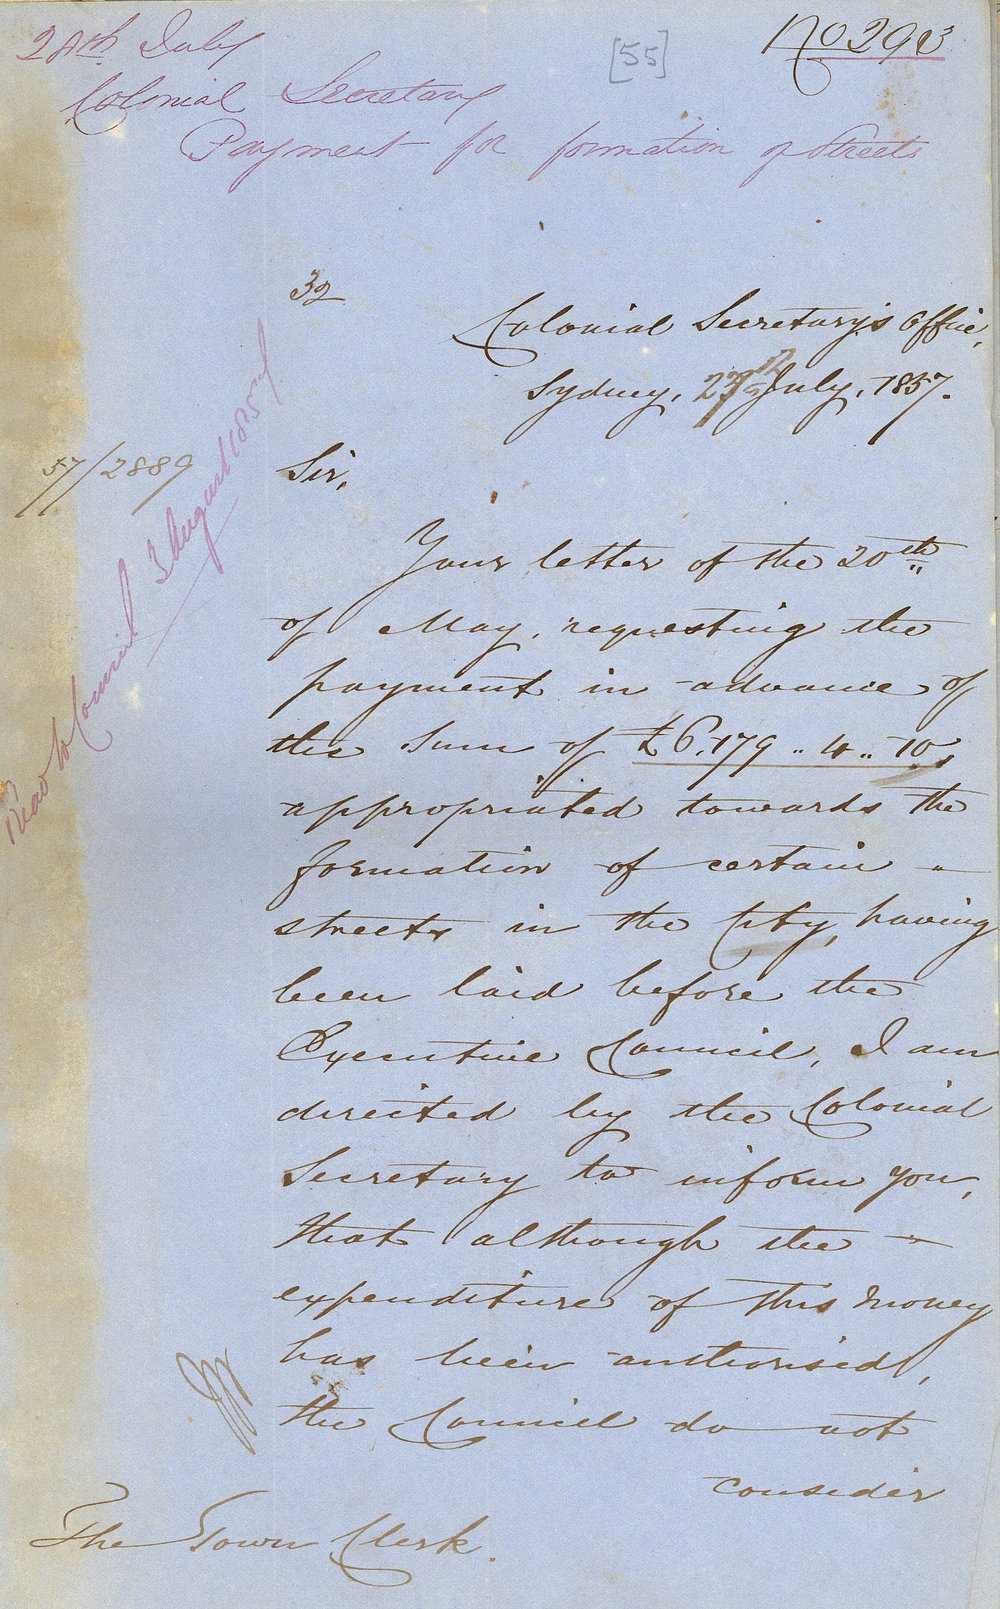 24th July
[55]
No 293
Colonial Secretary
Payment for formation of Streets
32
Colonial Secretary's Office,
Sydney, July, 1857.
57/2889
Read to Council 3 August 1857
Sir,
Your letter of the 20th
of May, requesting the
payment in advance of
the Sum of £6,179 .. 4 .. 10,
appropriated towards the
formation of certain -
streets in the City, having
been laid before the
Executive Council, I am
directed by the Colonial
Secretary to inform you,
that although the -
expenditure of this money
has been authorised,
the Council do not
consider
The Town Clerk.